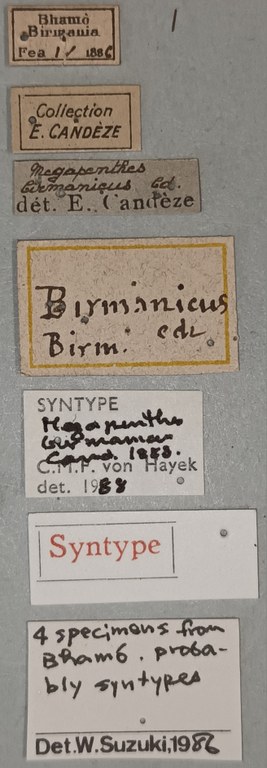 Bhamò
Birmania
Fea 1/ 1886
Collection
E. CANDÈZE
Megapenthes
birmanicus Cd.
dét. E. Candèze
Birmànicus
Birm. cdz
SYNTYPE
Megapenthes
birmanicus
Cand. 1888.
C.M.F. von Hayek
det. 1988
Syntype
4 specimens from
Bhamó. proba-
bly syntypes
Det.W.Suzuki,1986